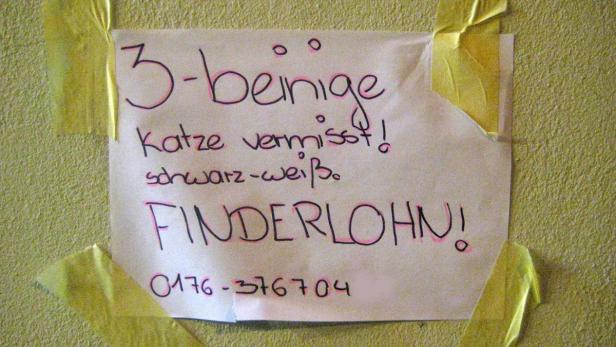 3-beinige
Katze vermisst!
schwarz-weiß.
FINDERLOHN!
0176-376704